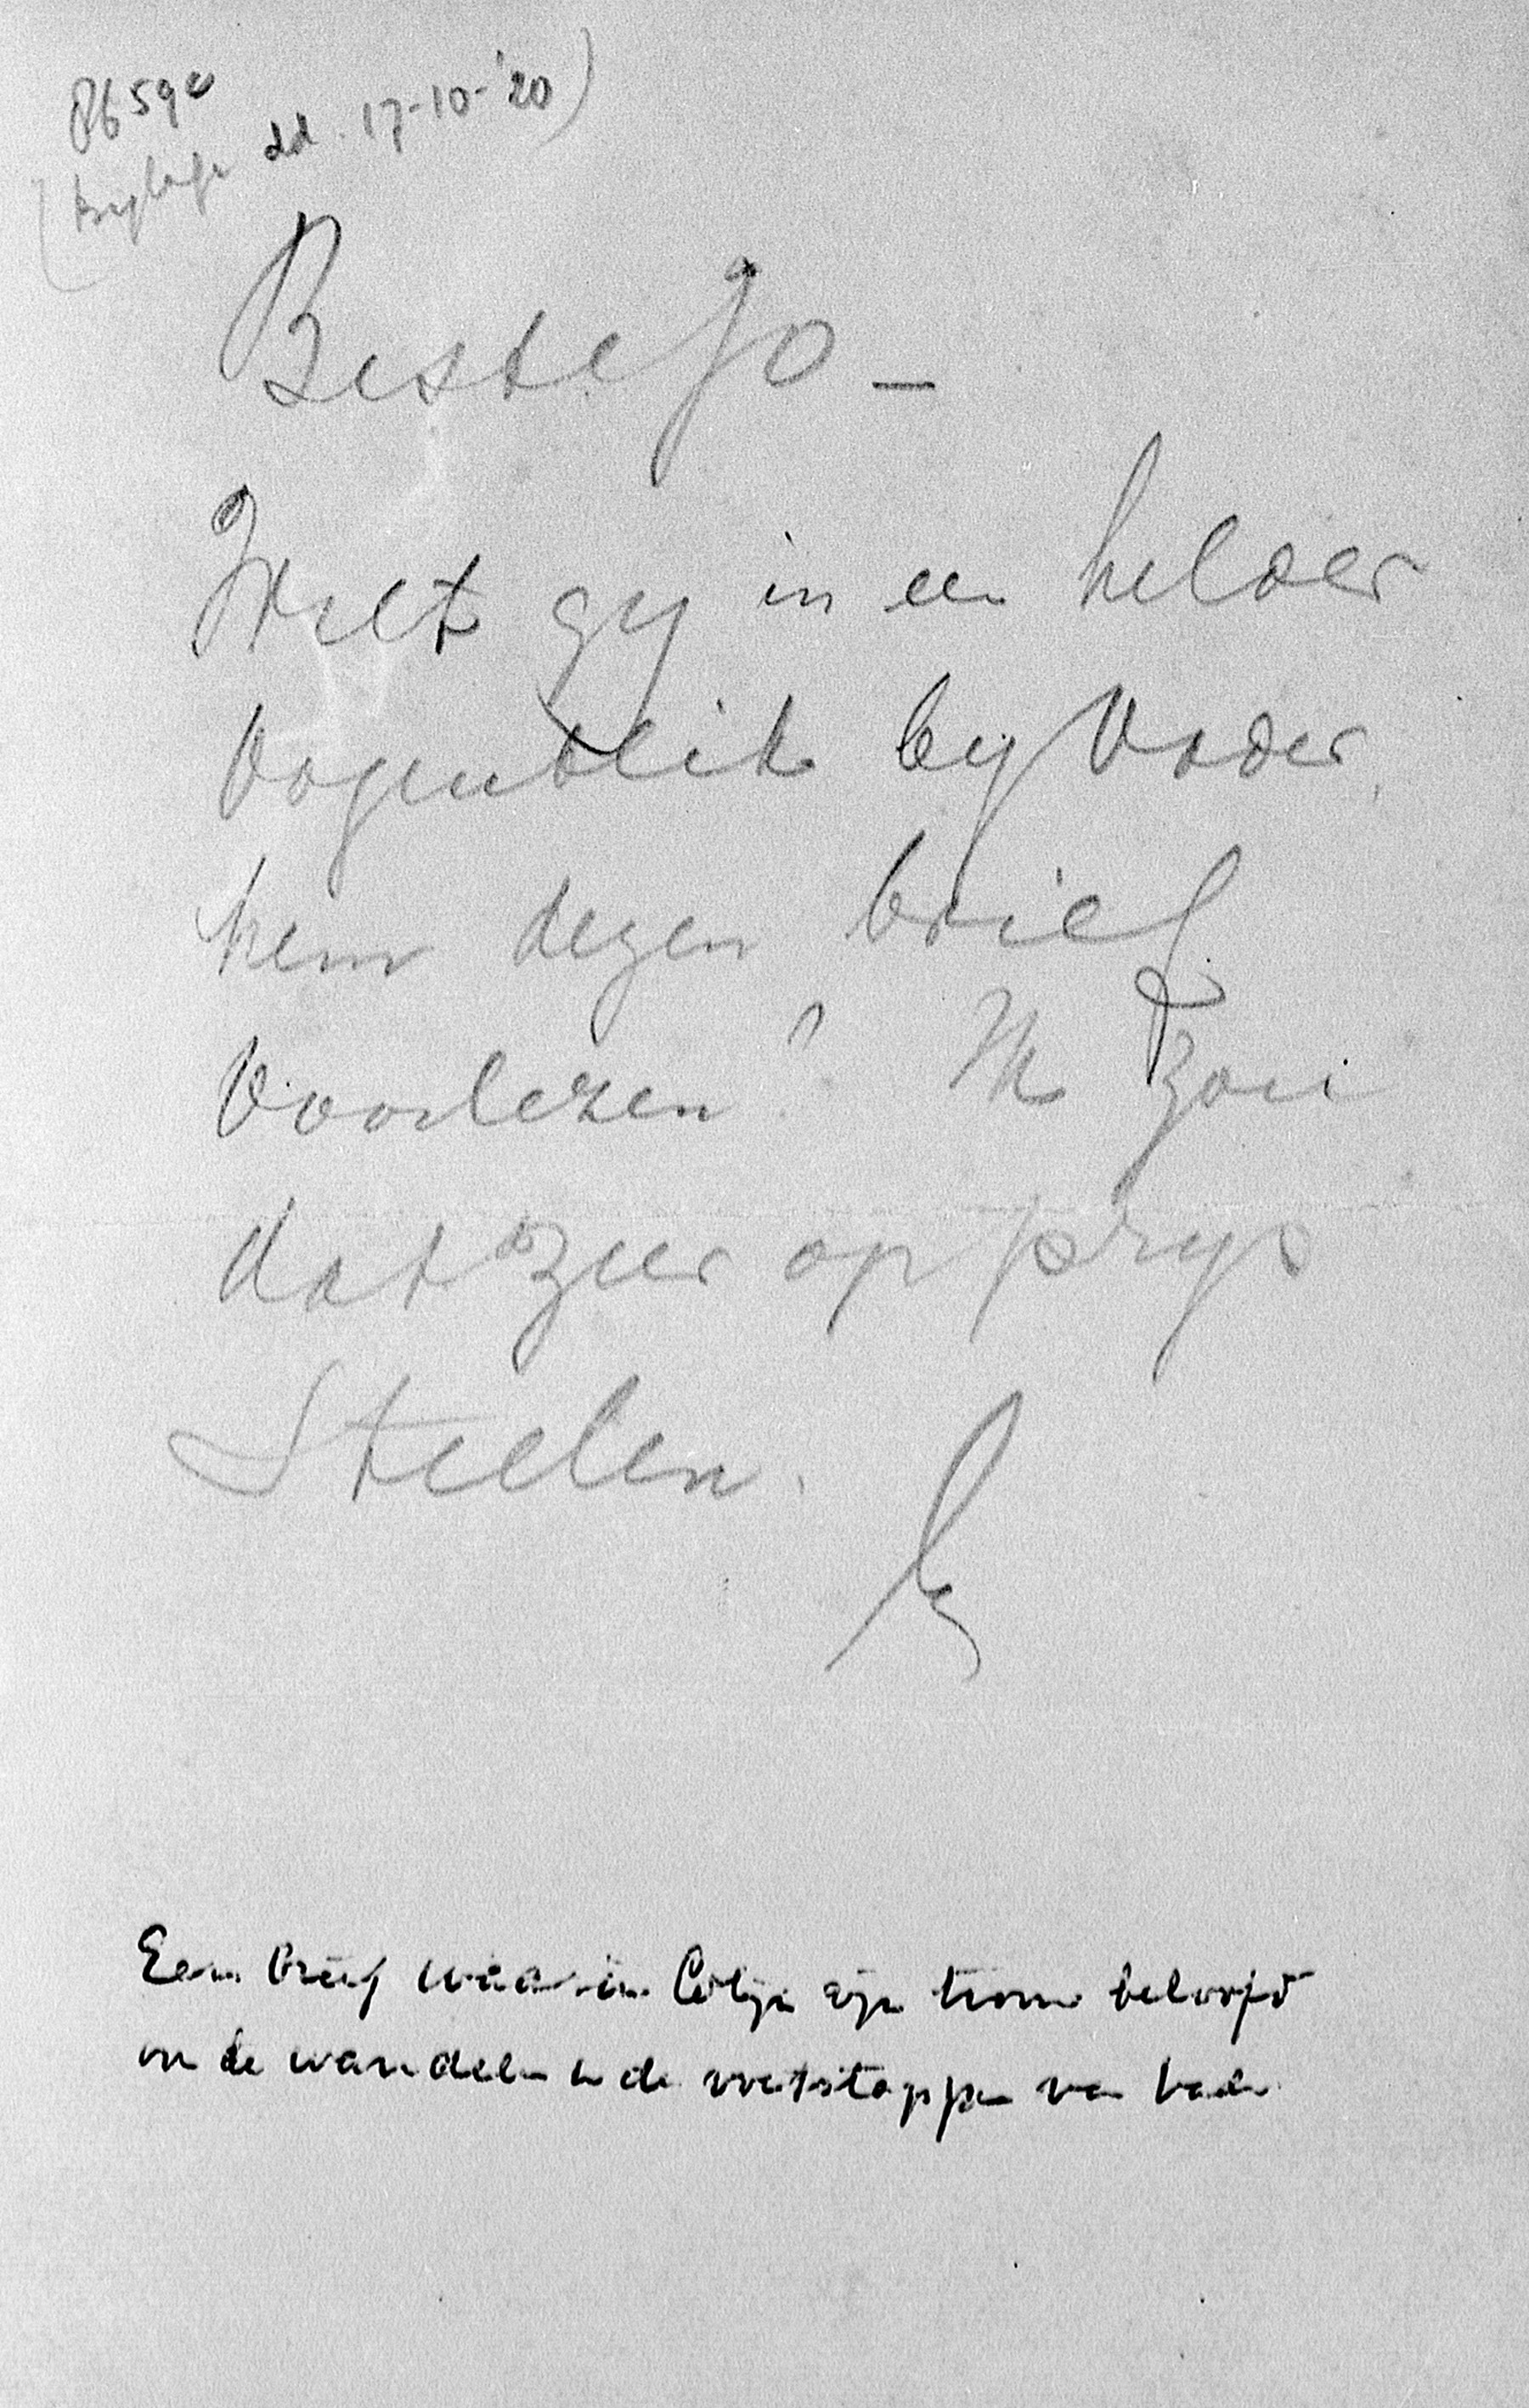 8659
(Bijlage dd. 17-10-'20)
Beste Jo –
Wilt gy in een helder
oogenblik by Vader
hem dezen brief
voorlezen? Ik zou
dat zeer op prys
stellen.
Een brief waarin Colijn zijn trouw belooft
en de wandelen in de voetstappen van Vader